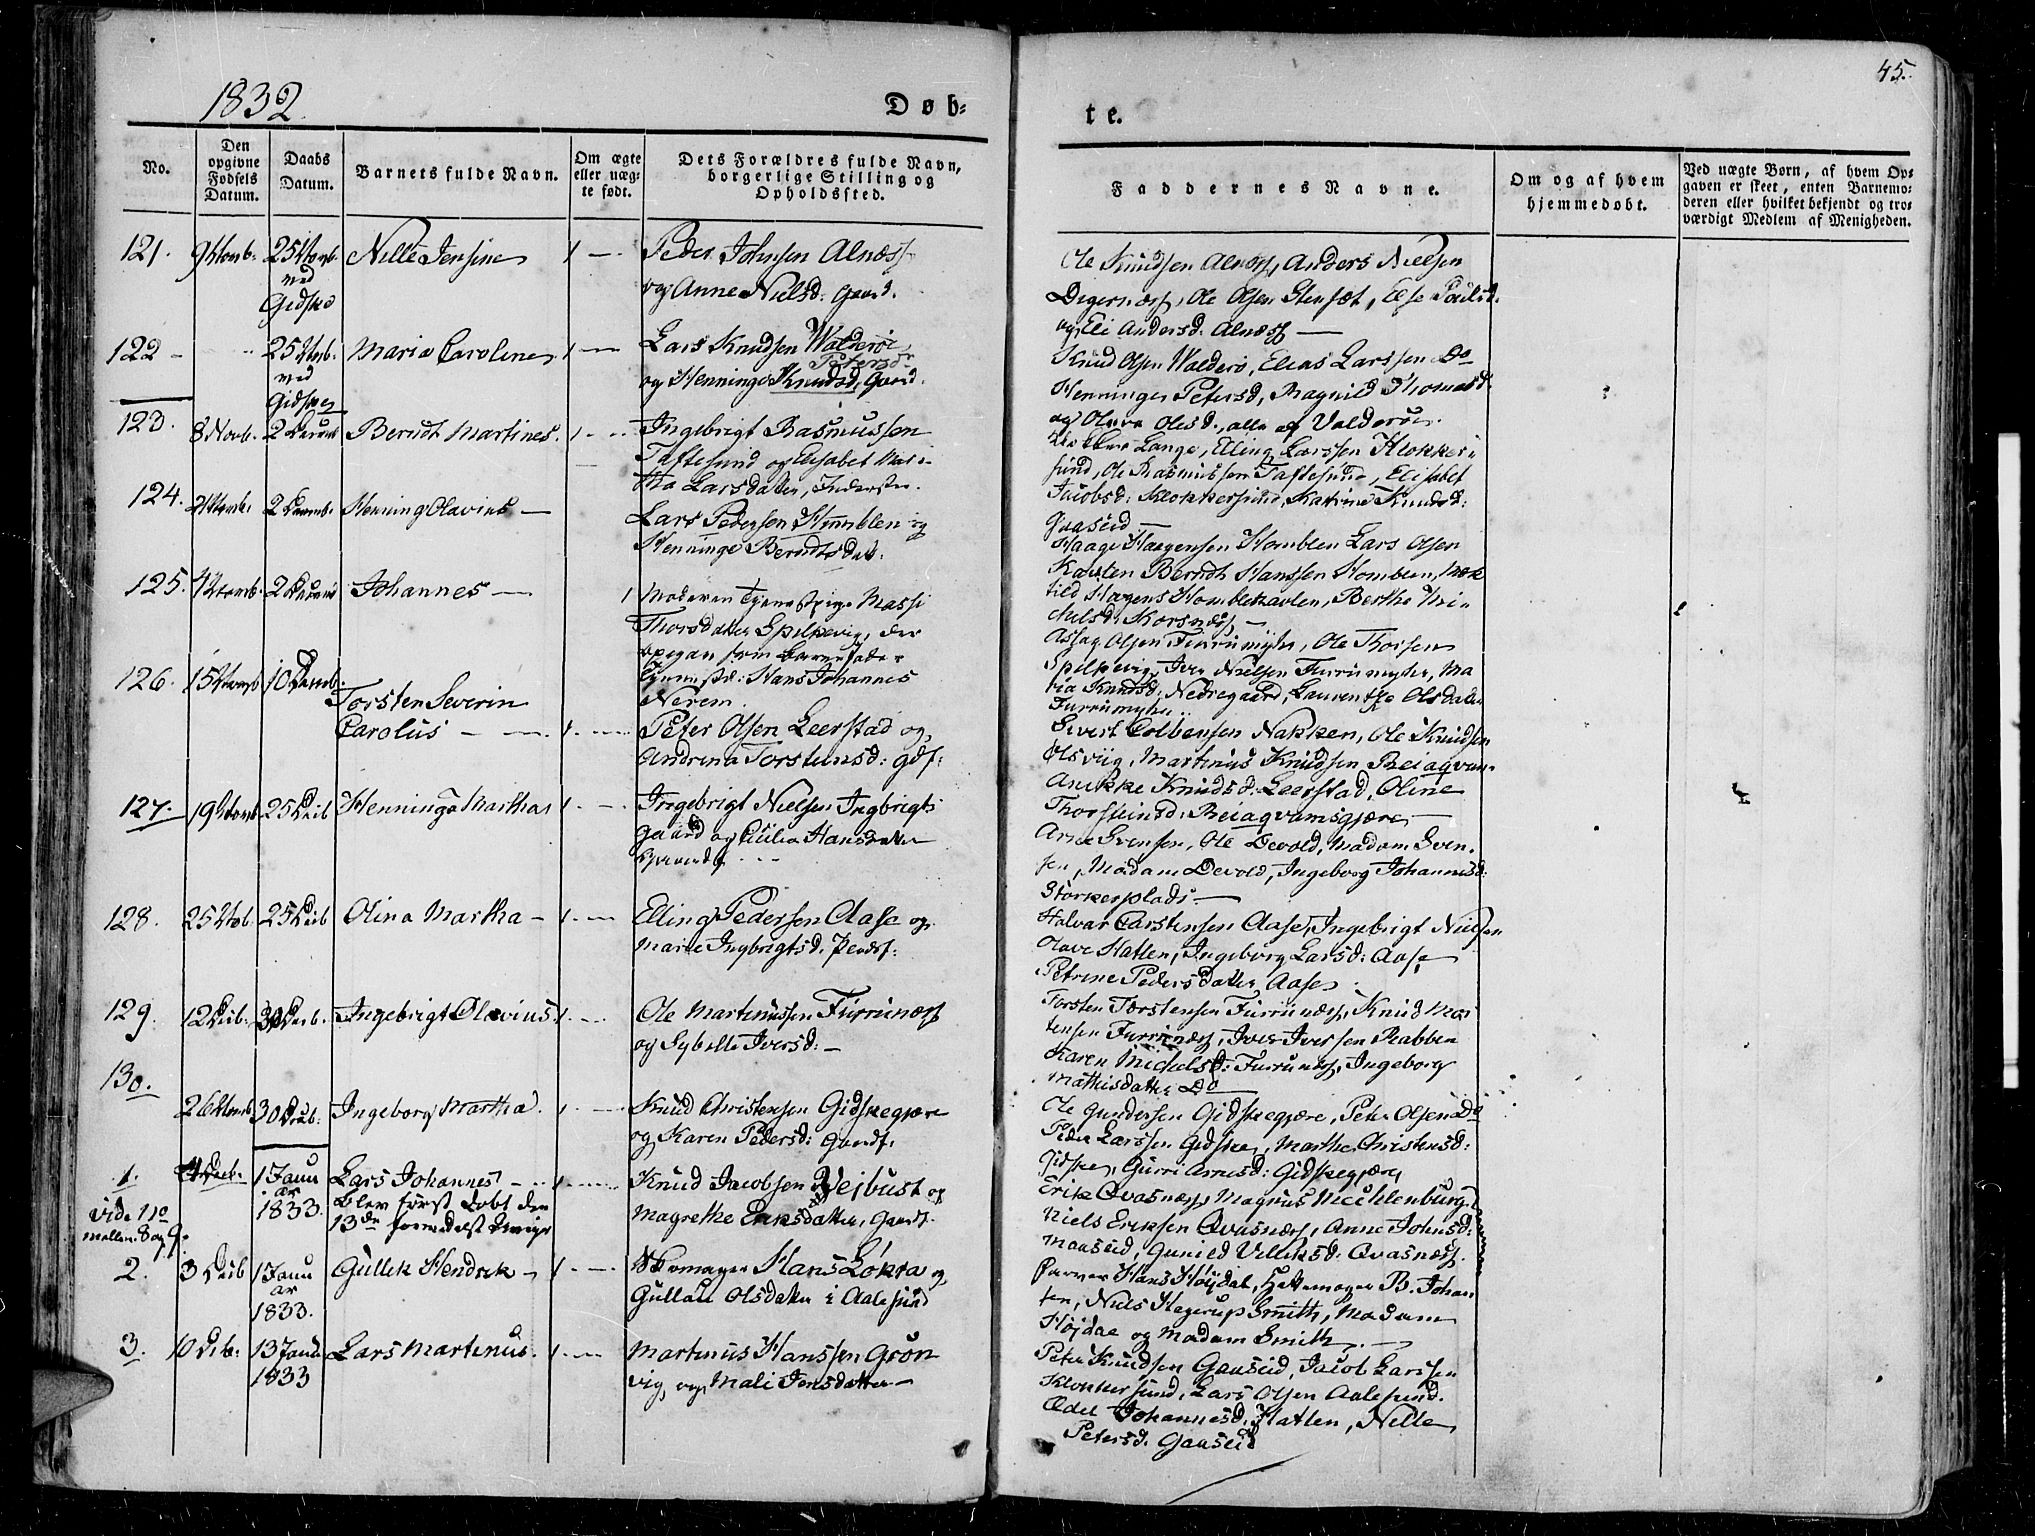 1832
Døb=
No.
Den opgivne Fødsels Datum.
Daabs Datum.
Barnets fulde Navn.
Om ægte eller uæg= te født.
Dets Forældres fulde Navn, borgerlige Stilling og Opholdssted.
121.
25
ved
Gidske
Nille Jensine
1 —
Peder Johnsen Alnæss
og Anne Nielsd. Gaard.
122 —
25
ved
Gidske
Maria Caroline
1 —
Lars Knudsen Walderøe
Petersdr
og Henninge Knudsd. Gaard.
123.
8 Novb.
2
Berndt Martines.
1 —
Ingebrigt Rasmussen
Taftesund og Elisabet Mar=
tha Larsdatter, Inderster
124.
2
Henning Olavius —
Lars Pedersen Humblen og
Henninge Berndtsdat.
125.
2
Johannes —
1
Moderen Tjenestpige Massi
Thorsdatter Spilkevig, der
opegav som Barnefader
Hans Johannes
Nerem.
126.
15
10
Torsten Severin
Carolus —
1 —
Peter Olsen Leerstad og
Andrina Torstensd: gdf:
127.
19
25
Henninga Martha
1 —
Ingebrigt Nielsen Ingbrigts
gaard og Cicilia Hansdatter
128.
25
25
Olina Martha —
1 —
Elling Pedersen Aase og
Marie Ingbrigtsd.
129.
12
30
Ingebrigt Olavius
1 —
Ole Martinussen Furrunæss
og Sybille Iversd: —
130.
26
30
Ingeborg Martha.
1 —
Knud Christensen Gidskegjære
og Karen Pedersd: Gaardf.
1.
vide No
mellem 8 og 9.
1 Janu
ar
1833.
Lars Johannes —
blev først døbt den
13de
1 —
Knud Jacobsen Vejbust og
Magrethe Eriksdatter, Gaardf.
2.
3
1 Janu
ar
1833.
Gullik Hendrik —
1 —
Skomager Hans Løkra og
Gullau Olsdatter i Aalesund
3.
10
13 Janu
1833
Lars Martinus.
1 —
Martinus Hanssen Grøn
vig, og Mali Jensdatter —
45.
te.
Faddernes Navne.
Om og af hvem hjemmedøbt.
Ved uægte Børn, af hvem Op=
gaven er skeet, enten Barnemo=
deren eller hvilket bekjendt og tro=
værdigt Medlem af Menigheden.
Ole Knudsen Alnæss, Anders Nielsen
Degernæss, Ole Olsen Stensæt, Else Poulsd.
og Eli Andersd. Alnæss —
Knud Olsen Walderø, Elias Larssen Do
Henninge Petersd, Magnild Thomasd
og Olava Olesd., alle af Valderøe.
Lange, Elling Larssen Klokker=
sund, Ole Rasmussen Taftesund, Elisabet
Jacobsd: Klokkersund, Katrina Knudsd:
Gaaseid —
Haage Haagensen Homblen Lars Olsen
Karsten Berndt Hanssen Homblen, Mek
tild Hagens Homblehavlen, Berthe Mi=
chelsd: Korsnæss —
Assag Olsen Furrumyhr, Ole Thorsen
Spilkevig, Iver Nielsen Furrumyhr, Ma
ria Knudsd: Nedregaard, Laurentze Olsdatter
Furrumyhr.
Sivert Colbensen Nakken, Ole Knudsen
Olsviig, Martinus Knudsen Beiaqvam.
Anikke Knudsd: Leerstad, Oline
Thorsteinsd: Beiaqvamsgjære —
Arne Svensen, Ole Devold, Madam Sven=
sen, Madam Devold, Ingeborg Johannesd:
Storkersplads —
Halvar Carstensen Aase, Ingebrigt Nielsen
Olave Hatlen, Ingeborg Larsd: Aase
Petrine Pedersdatter Aase
Torsten Torstensen Furrunæss, Knud Mor
tensen Furrunæss, Iver Iversen Rabben
Karen Michelsd: Furrunæss, Ingeborg
Mathisdatter Do
Ole Gundersen Gidskegjære, Peter Olsen Do
Peder Larssen Gidske, Marthe Christensd:
Gidske, Gurri Arnesd: Gidskegjære
Erik Qvasnæss, Magnus Mechlenburg,
Niels Eriksen Qvasnæss, Anne Johnsd:
Maaseid, Gunild Villeksd: Qvasnæss.
Farver Hans Højdal, Hattemager B. Johan
sen, Niels Hagerup Smith, Madam
Højdal og Madam Smith —
Peter Knudsen Gaaseid, Jacob Larssen
Klokkersund, Lars Olsen Aalesund.
Johannesd. Hatlen, Nille
Petersd. Gaaseid